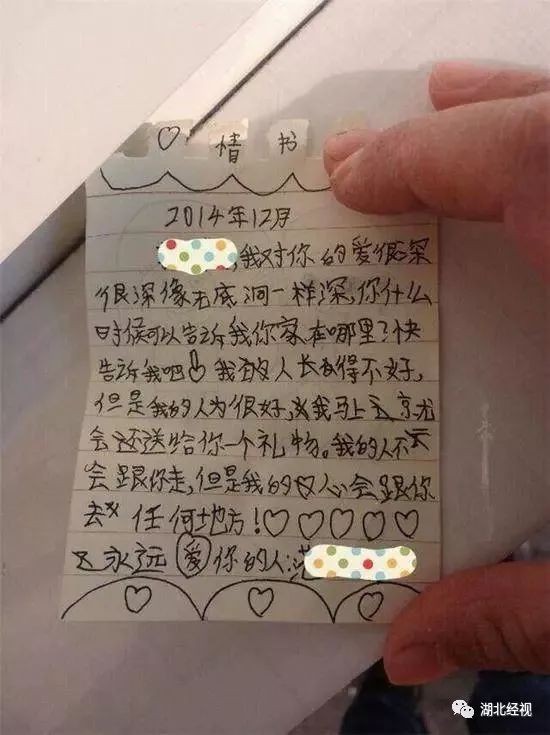 ♡ 情书
2014年12月
,我对你的爱很深
很深像无底洞一样深,你什么
时候可以告诉我你家在哪里?快
告诉我吧 我的人长得不好,
但是我的人为很好,我马上
会还送给你一个礼物。我的人不
会跟你走,但是我的心会跟你
去任何地方!♡♡♡♡♡
永远爱你的人:
湖北经视